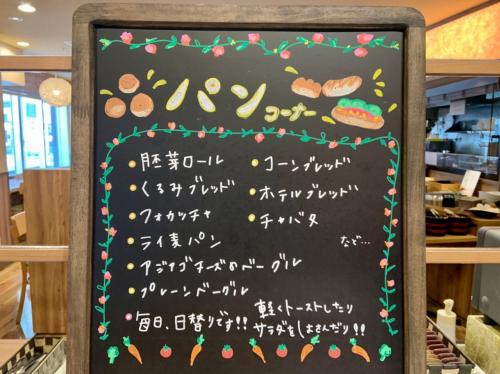 パンコーナー
胚芽ロール
くるみブレッド
フォカッチャ
ライ麦パン
アジアゴチーズのベーグル
プレーンベーグル
コーンブレッド
ホテルブレッド
チャバタ
など…
毎日、日替りです!!
軽くトーストしたり
サラダをはさんだり!!